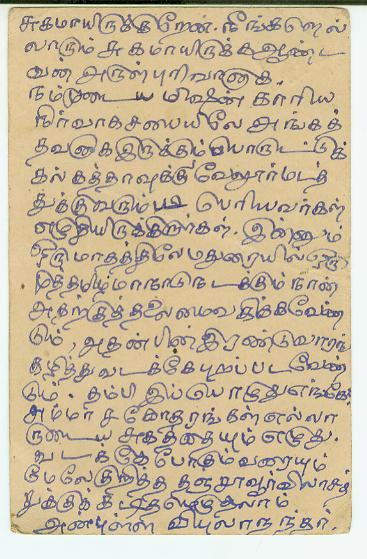 சுகமாயிருக்கிறேன். நீங்களெல்
லாரும் சுகமாயிருக்க ஆண்ட
வன் அருள்புரிவானாக.
நம்முடைய மிஷன் காரிய
நிர்வாகசபையிலே அங்கத்
தவனாக இருக்கும் பொருட்டுக்
கல்கத்தாவுக்கு வேலூர்மடத்
துக்கு வரும்படி பெரியவர்கள்
எழுதியிருக்கிறார்கள். இன்னும்
ஒருமாதத்திலே மதுரையில் ஒரு
முத்தமிழ்மாநாடு நடக்கும் நான்
அதற்குத் தலைமை வகிக்கவேண்
டும், அதன்பின் இரண்டுவாரங்
கழித்து வடக்கே புறப்படவேண்
டும். தம்பி இப்பொழுது எங்கே?
அம்மா சகோதரங்கள் எல்லா
ருடைய சுகத்தையும் எழுது.
வடக்கே போகும்வரையும்
மேலே குறித்த தஞ்சாவூர் விலாசத்
துக்குக் கடிதமெழுதலாம்
அன்புள்ள விபுலாநந்தர்.